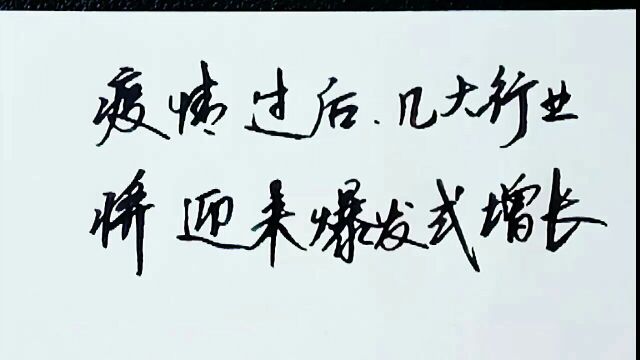 疫情过后.几大行业
将迎来爆发式增长